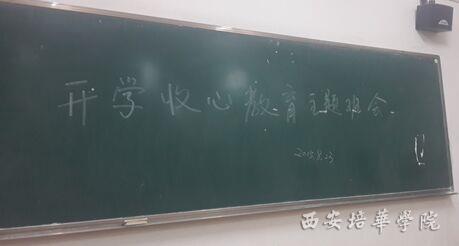 开学收心教育主题班会.
2015.8.23
西安培華學院